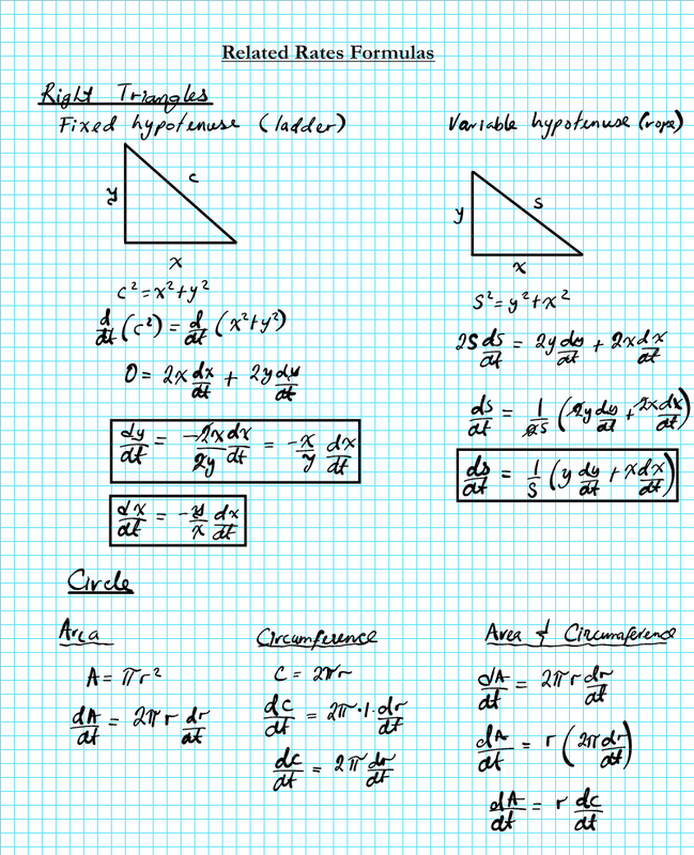 Related Rates Formulas
Right Triangles
Fixed hypotenuse (ladder)
y
c
x
c² = x² + y²
d/dt (c²) = d/dt (x² + y²)
0 = 2x dx/dt + 2y dy/dt
dy/dt = -2x/2y dx/dt = -x/y dx/dt
dx/dt = -y/x dx/dt
Variable hypotenuse (rope)
y
s
x
S² = y² + x²
2S ds/dt = 2y dy/dt + 2x dx/dt
ds/dt = 1/2s (2y dy/dt + 2x dx/dt)
ds/dt = 1/S (y dy/dt + x dx/dt)
Circle
Area
A = πr²
dA/dt = 2πr dr/dt
Circumference
C = 2πr
dc/dt = 2π·1·dr/dt
dc/dt = 2π dr/dt
Area & Circumaference
dA/dt = 2πr dr/dt
dA/dt = r (2π dr/dt)
dA/dt = r dc/dt